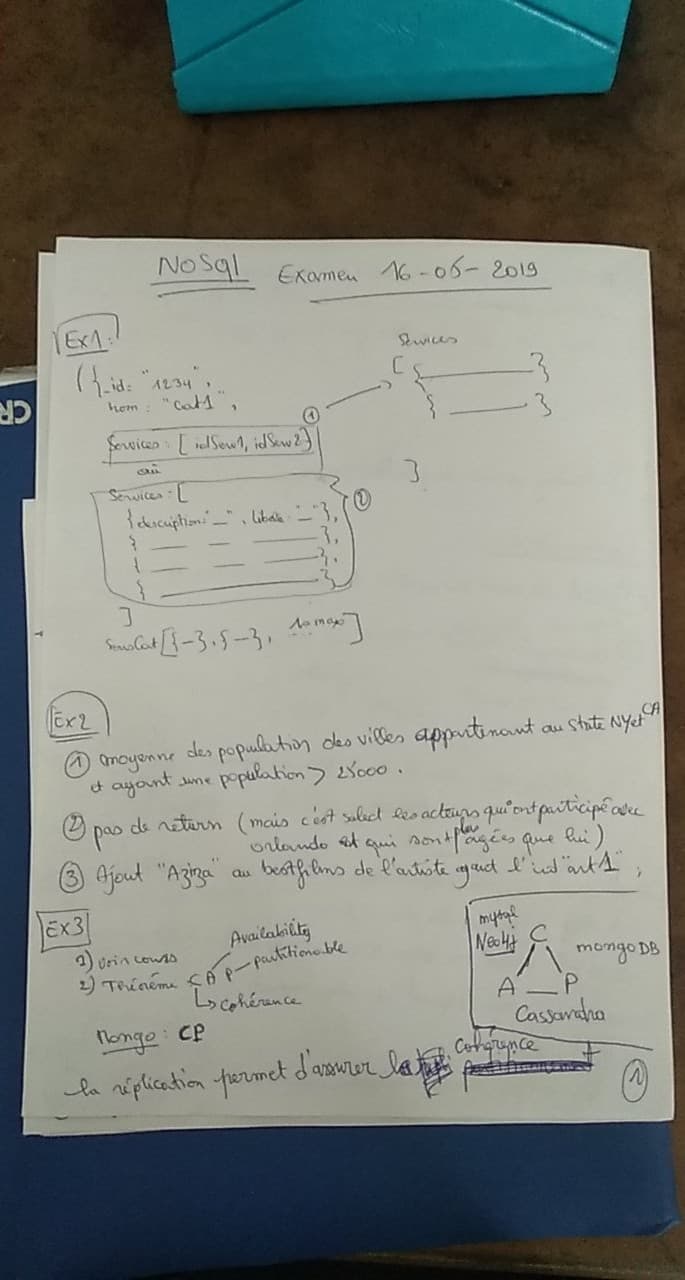 NoSql Examen 16-06-2019
Ex1:
({_id: "1234",
nom: "Cat1",
Services: [idServ1, idServ2]
①
ou
Services: [
{description: "_", libelle: "_"},
{ — — — },
{ — — — },
{ ——— }
②
]
SousCat[{-}, {-}, 10 max]
Services
[{ ——— }
{ ——— }
]
Ex2
① moyenne des population des villes appartenant au state NY et CA
et ayant une population > 25000.
② pas de return (mais c'est select les acteurs qui ont participé avec
orlando et qui sont plus agées que lui)
③ Ajout "Aziza" au bestfilms de l'artiste ayant l'id "art1";
Ex3
1) voir cours
2) Théorème CAP
Availability
partitionable
↳ Cohérence
Mongo: CP
mysql
Neo4j
C
mongoDB
A — P
Cassandra
la réplication permet d'assurer la Cohérence
①
CR